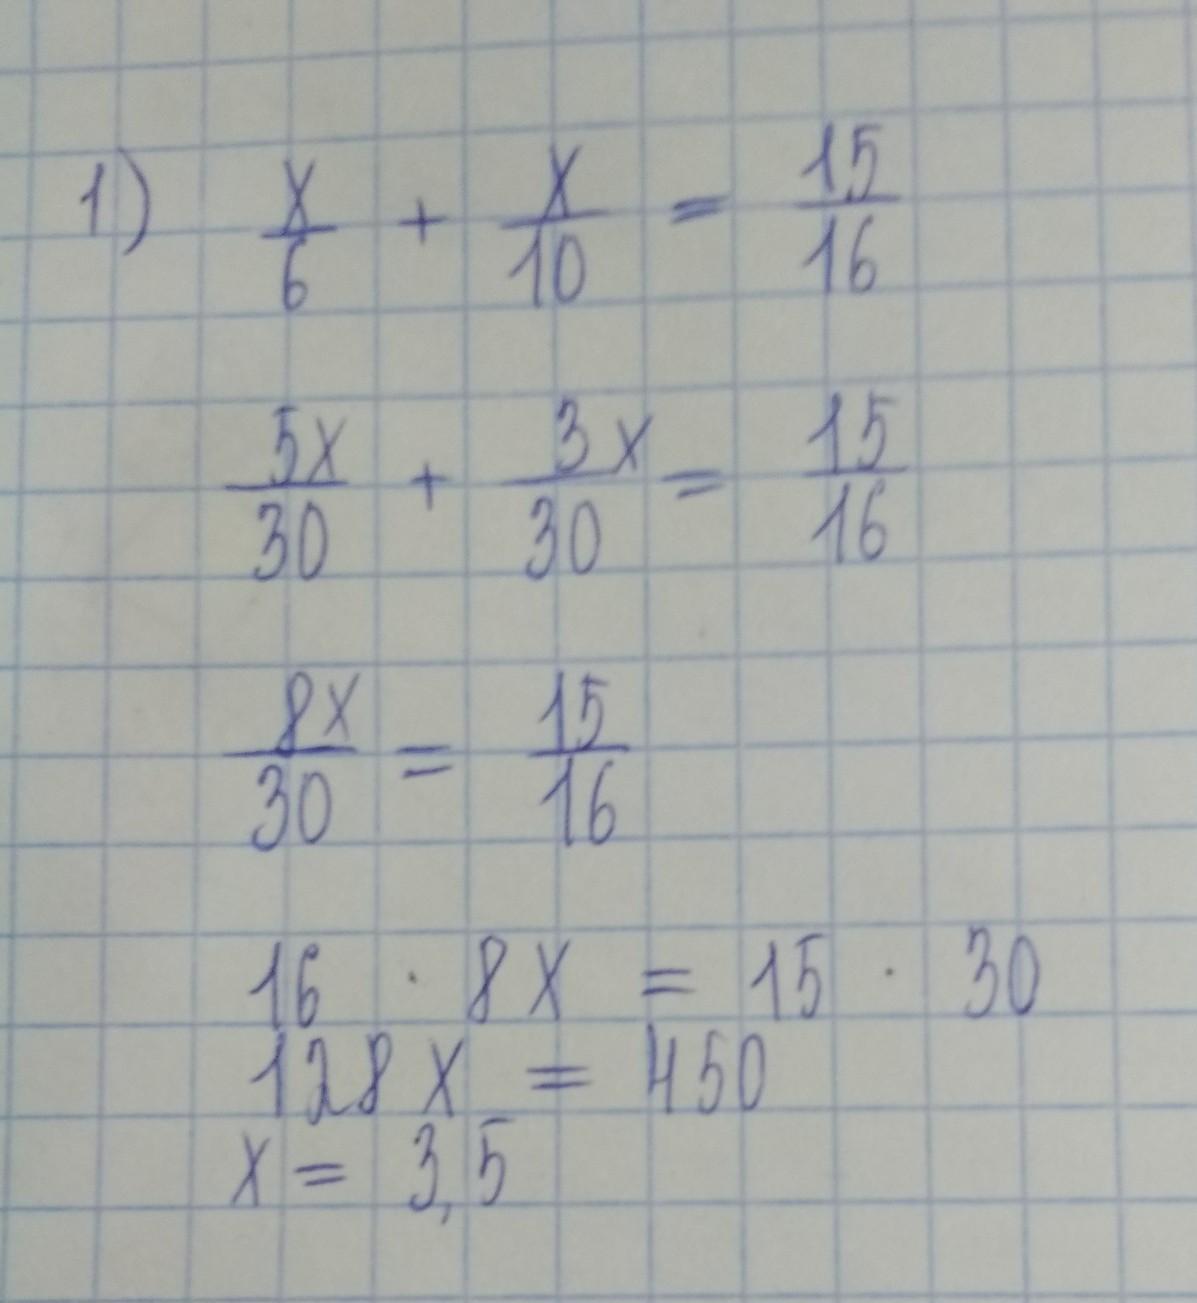 1) x/6 + x/10 = 15/16
5x/30 + 3x/30 = 15/16
8x/30 = 15/16
16 · 8x = 15 · 30
128x = 450
x = 3,5